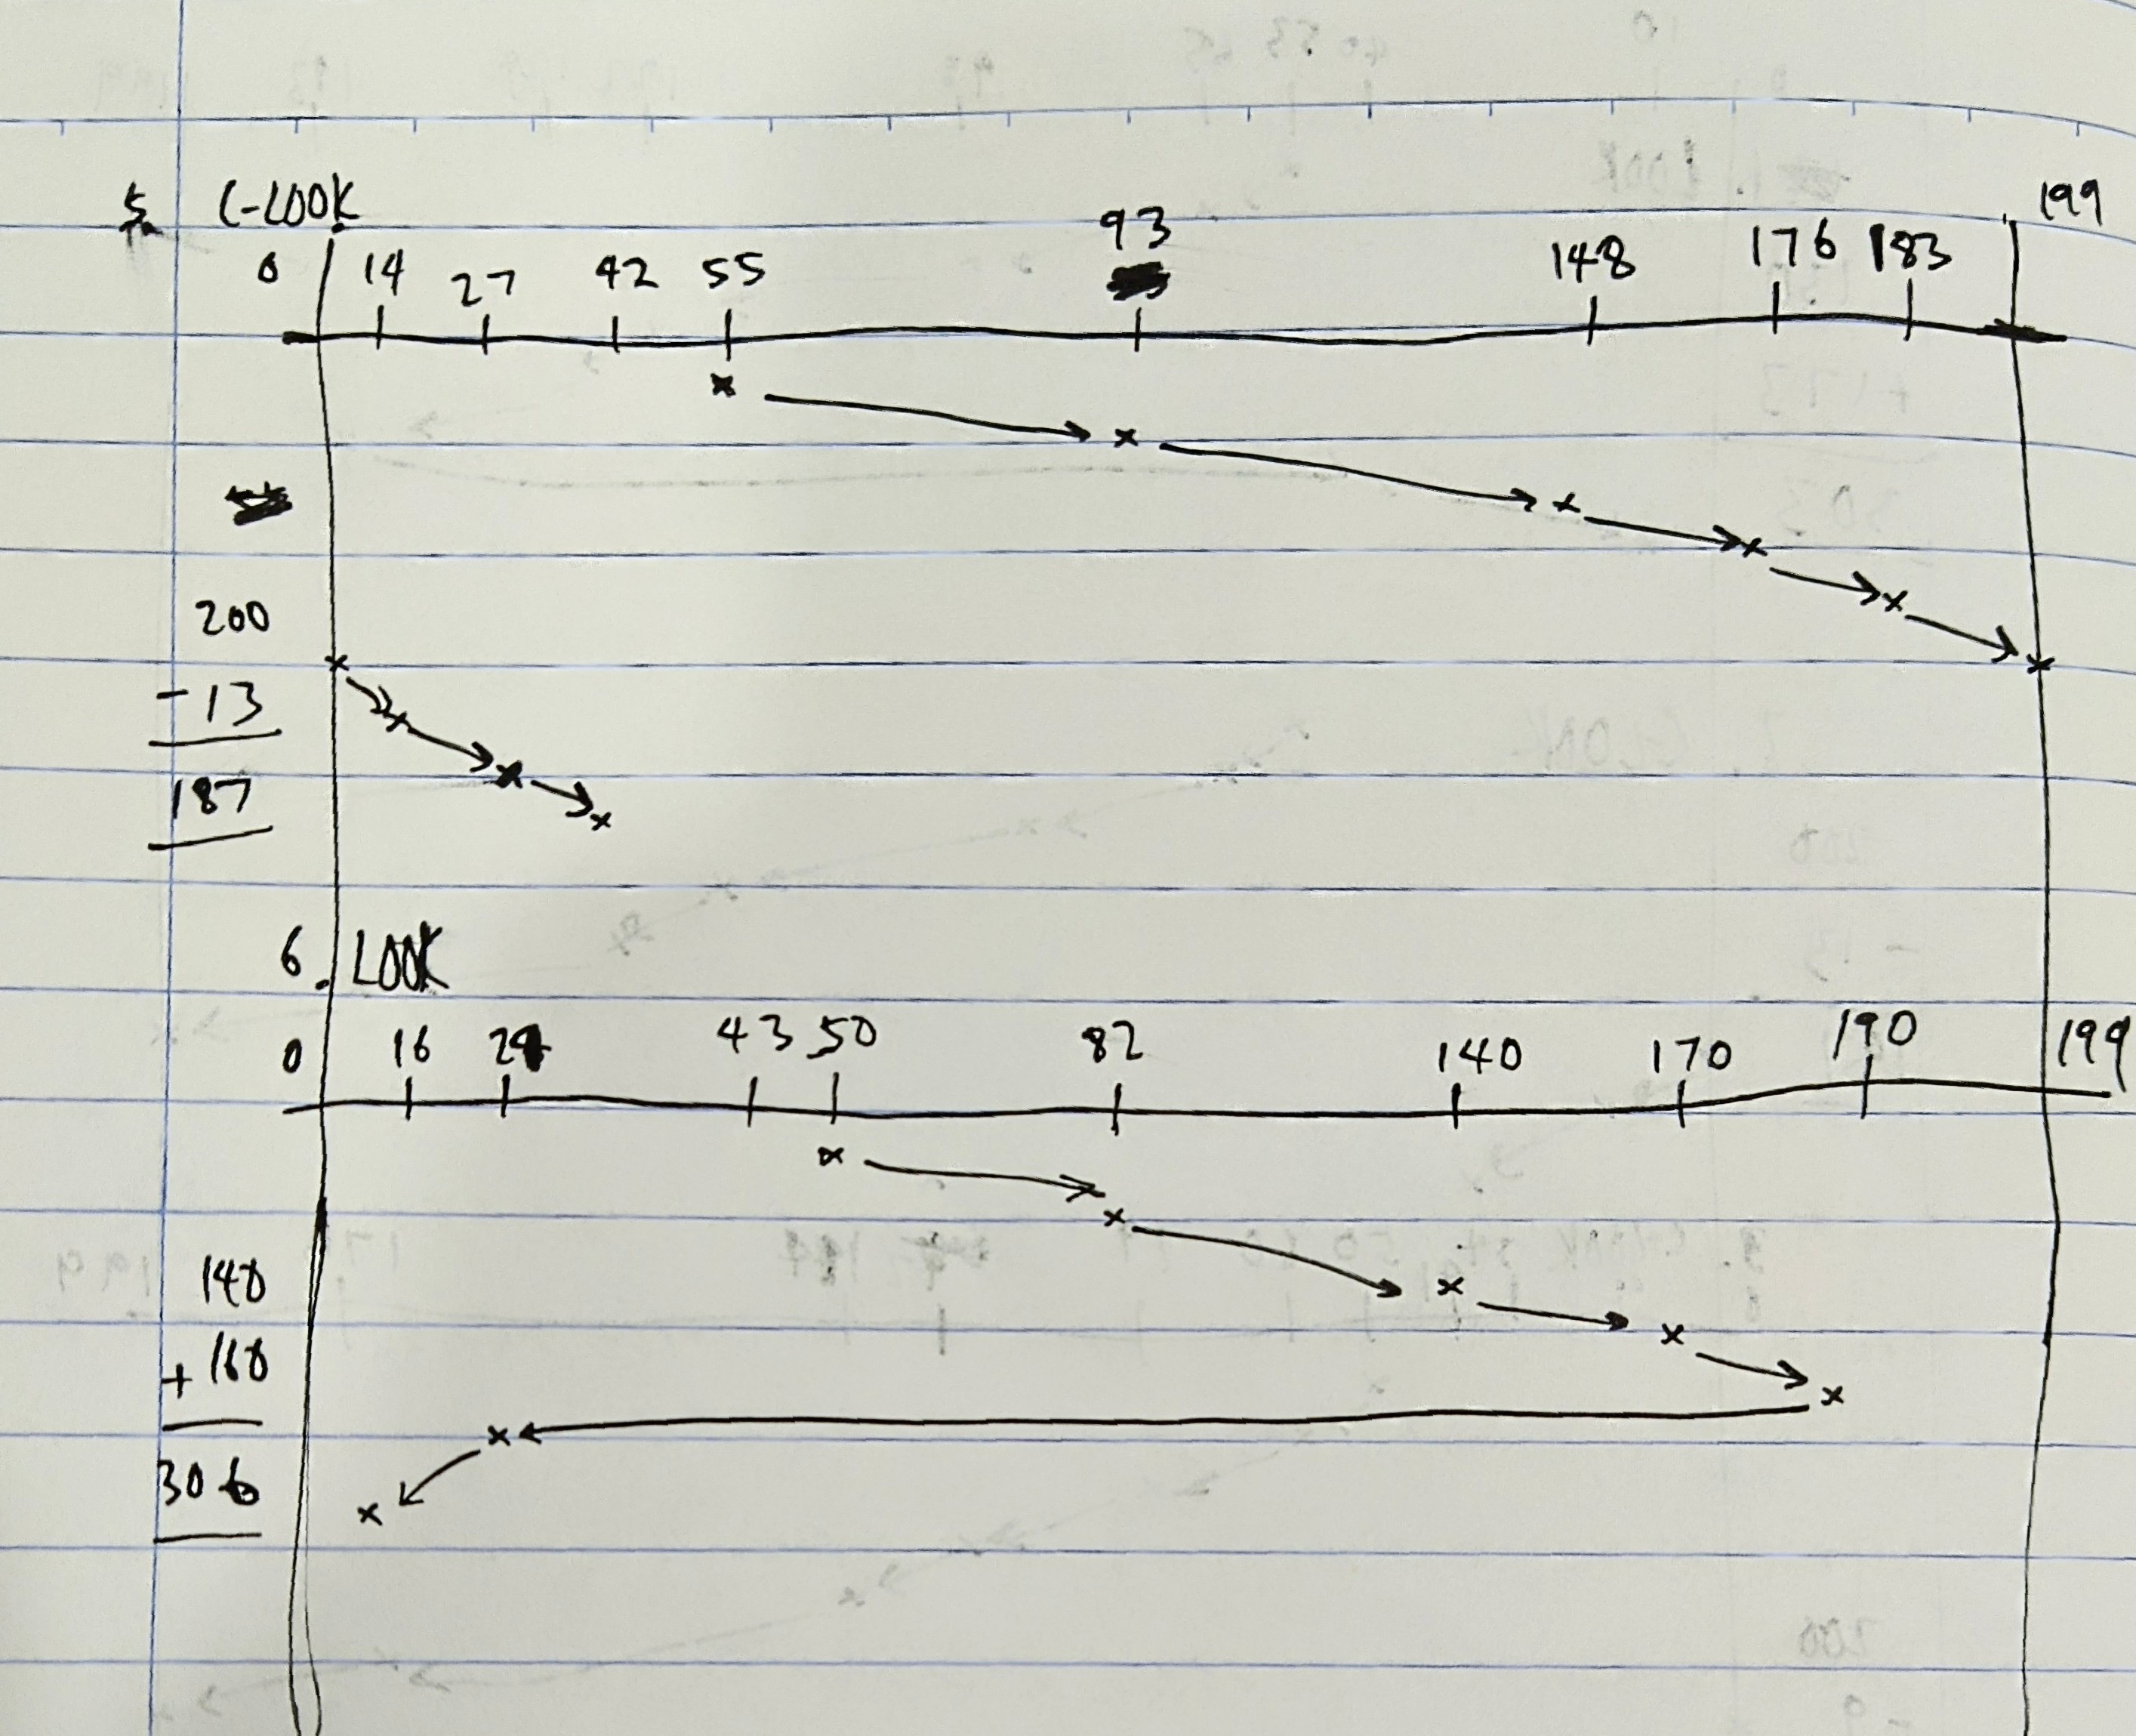 5. C-LOOK
0 14 27 42 55 93 148 176 183 199
200
- 13
187
6. LOOK
0 16 43 50 82 140 170 190 199
140
+ 160
306